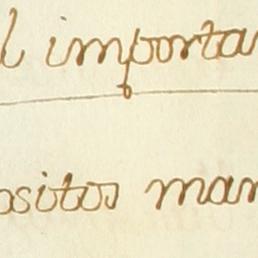 l importa
ositos man